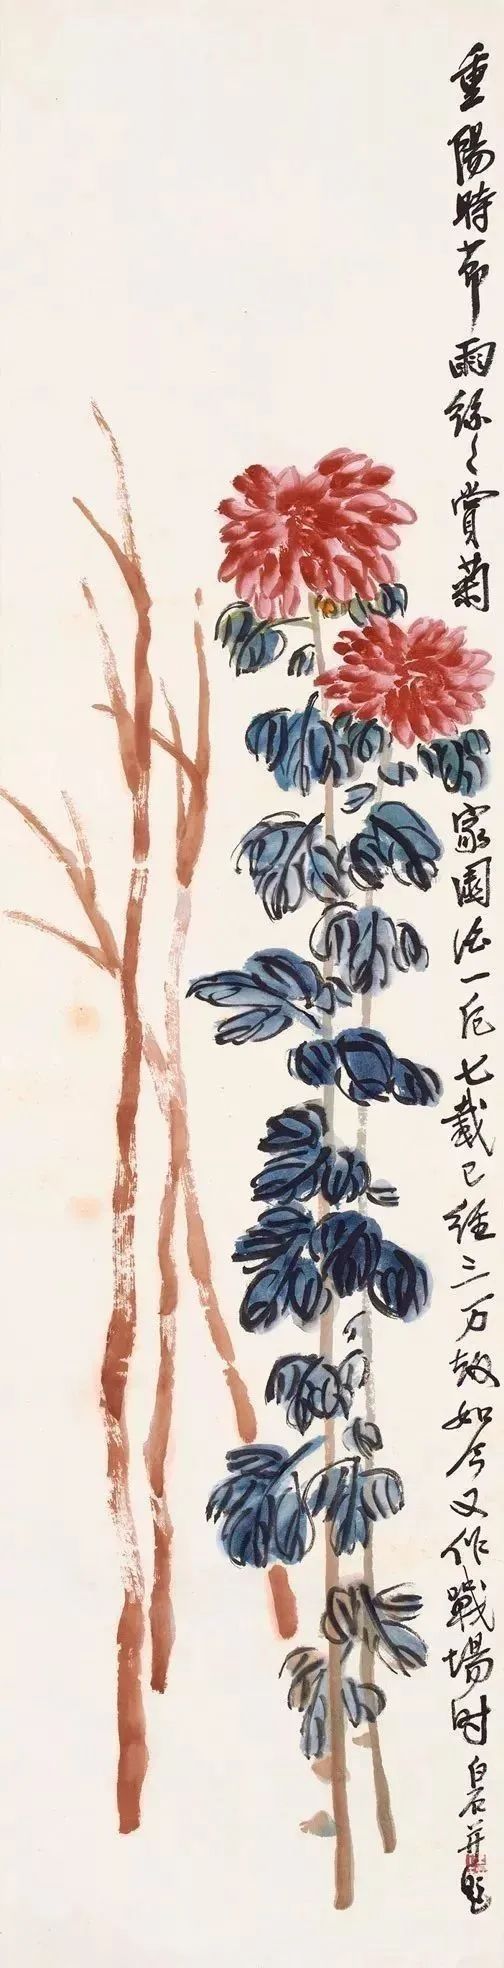 重陽時節雨絲々賞菊家園酒一卮七載已經三万劫如今又作戰場时白石并題